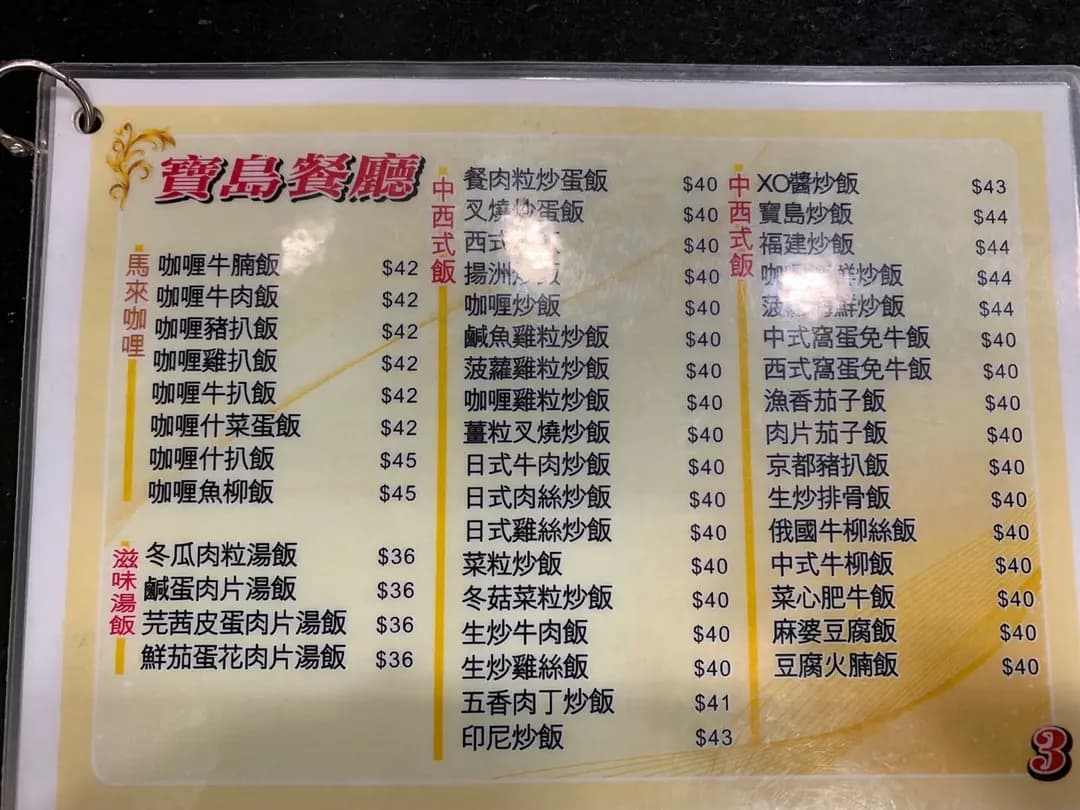 寶島餐廳
馬來咖哩
咖喱牛腩飯 $42
咖喱牛肉飯 $42
咖喱豬扒飯 $42
咖喱雞扒飯 $42
咖喱牛扒飯 $42
咖喱什菜蛋飯 $42
咖喱什扒飯 $45
咖喱魚柳飯 $45
滋味湯飯
冬瓜肉粒湯飯 $36
鹹蛋肉片湯飯 $36
芫茜皮蛋肉片湯飯 $36
鮮茄蛋花肉片湯飯 $36
中西式飯
餐肉粒炒蛋飯 $40
叉燒炒蛋飯 $40
西式 $40
揚洲炒飯 $40
咖喱炒飯 $40
鹹魚雞粒炒飯 $40
菠蘿雞粒炒飯 $40
咖喱雞粒炒飯 $40
薑粒叉燒炒飯 $40
日式牛肉炒飯 $40
日式肉絲炒飯 $40
日式雞絲炒飯 $40
菜粒炒飯 $40
冬菇菜粒炒飯 $40
生炒牛肉飯 $40
生炒雞絲飯 $40
五香肉丁炒飯 $41
印尼炒飯 $43
中西式飯
XO醬炒飯 $43
寶島炒飯 $44
福建炒飯 $44
咖喱海鮮炒飯 $44
菠蘿海鮮炒飯 $44
中式窩蛋免牛飯 $40
西式窩蛋免牛飯 $40
漁香茄子飯 $40
肉片茄子飯 $40
京都豬扒飯 $40
生炒排骨飯 $40
俄國牛柳絲飯 $40
中式牛柳飯 $40
菜心肥牛飯 $40
麻婆豆腐飯 $40
豆腐火腩飯 $40
3